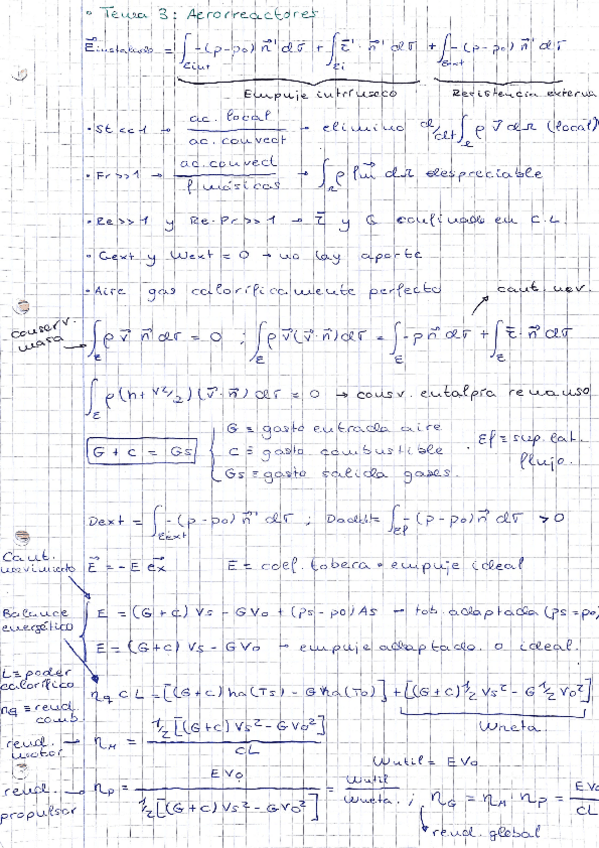 • Tema 3: Aerorreactores
E⃗instalado = ∫Σint -(p-p₀) n⃗' dσ + ∫Σi τ̄' · n⃗' dσ + ∫Σext -(p-p₀) n⃗' dσ
Empuje intrínseco Resistencia externa
• St<<1 → ac. local / ac. convect → elimino d/dt ∫Ω ρ v⃗ dΩ (local)
• Fr>>1 → ac. convect / f másicas → ∫Ω ρ f⃗m dΩ despreciable
• Re>>1 y Re·Pr>>1 → τ̄ y G confinado en C.L
• Gext y Wext = 0 → no hay aporte
• Aire gas caloríficamente perfecto cant. mov.
conserv. masa → ∫Σ ρ v⃗ n⃗ dσ = 0 ; ∫Σ ρ v⃗ (v⃗·n⃗) dσ = ∫Σ -p n⃗ dσ + ∫Σ τ̄ · n⃗ dσ
∫Σ ρ (h + v²/2) (v⃗·n⃗) dσ = 0 → consv. entalpía remanso
G + c = Gs
G ≡ gasto entrada aire
c ≡ gasto combustible
Gs ≡ gasto salida gases.
• Σf ≡ sup. lat. flujo.
Dext = ∫Σext -(p-p₀) n⃗' dσ ; Dadd = ∫Σf -(p-p₀) n⃗ dσ > 0
Cant. movimiento E⃗ = -E e⃗x E = coef. tobera • empuje ideal
Balance energético
E = (G+c) Vs - GV₀ + (ps-p₀) As → tob. adaptada (ps=p₀)
E = (G+c) Vs - GV₀ → empuje adaptado o ideal.
L ≡ poder calorífico
ηq ≡ rend. comb.
ηq c L = [(G+c) ha(Ts) - G ha(T₀)] + [(G+c) ½ Vs² - G ½ V₀²]
Wneta.
rend. motor → ηM = ½ [(G+c) Vs² - GV₀²] / cL
Wutil = EV₀
rend. propulsor → ηP = EV₀ / ½ [(G+c) Vs² - GV₀²] = Wutil / Wneta. ; ηG = ηM · ηP = EV₀ / cL
rend. global